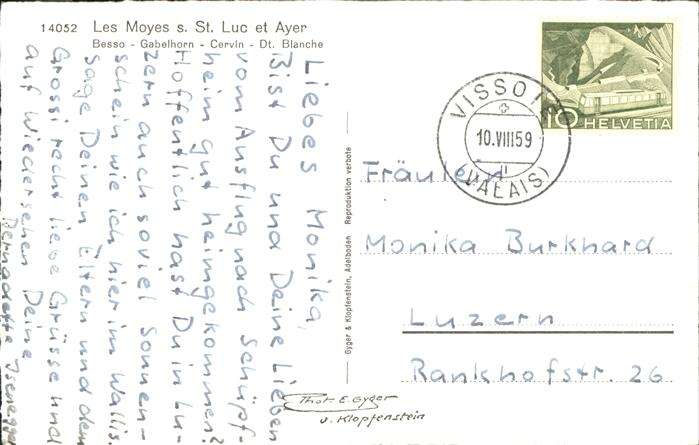 14052 Les Moyes s. St. Luc et Ayer
Besso - Gabelhorn - Cervin - Dt. Blanche
Liebes Monika,
Bist Du und Deine Lieben
vom Ausflug nach Schüpf-
heim gut heimgekommen?
Hoffentlich hast Du in Lu-
zern auch soviel Sonnen-
schein wie ich hier im Wallis.
Sage Deinen Eltern und dem
Grossi recht liebe Grüsse und
auf Wiedersehen Deine
Bernadette Isenegger
Gyger & Klopfenstein, Adelboden Reproduktion verbote
Phot. E. Gyger
u. Klopfenstein
10 HELVETIA
VISSOIE
10.VIII59
(VALAIS)
Fräulein
Monika Burkhard
Luzern
Rankhofstr. 26